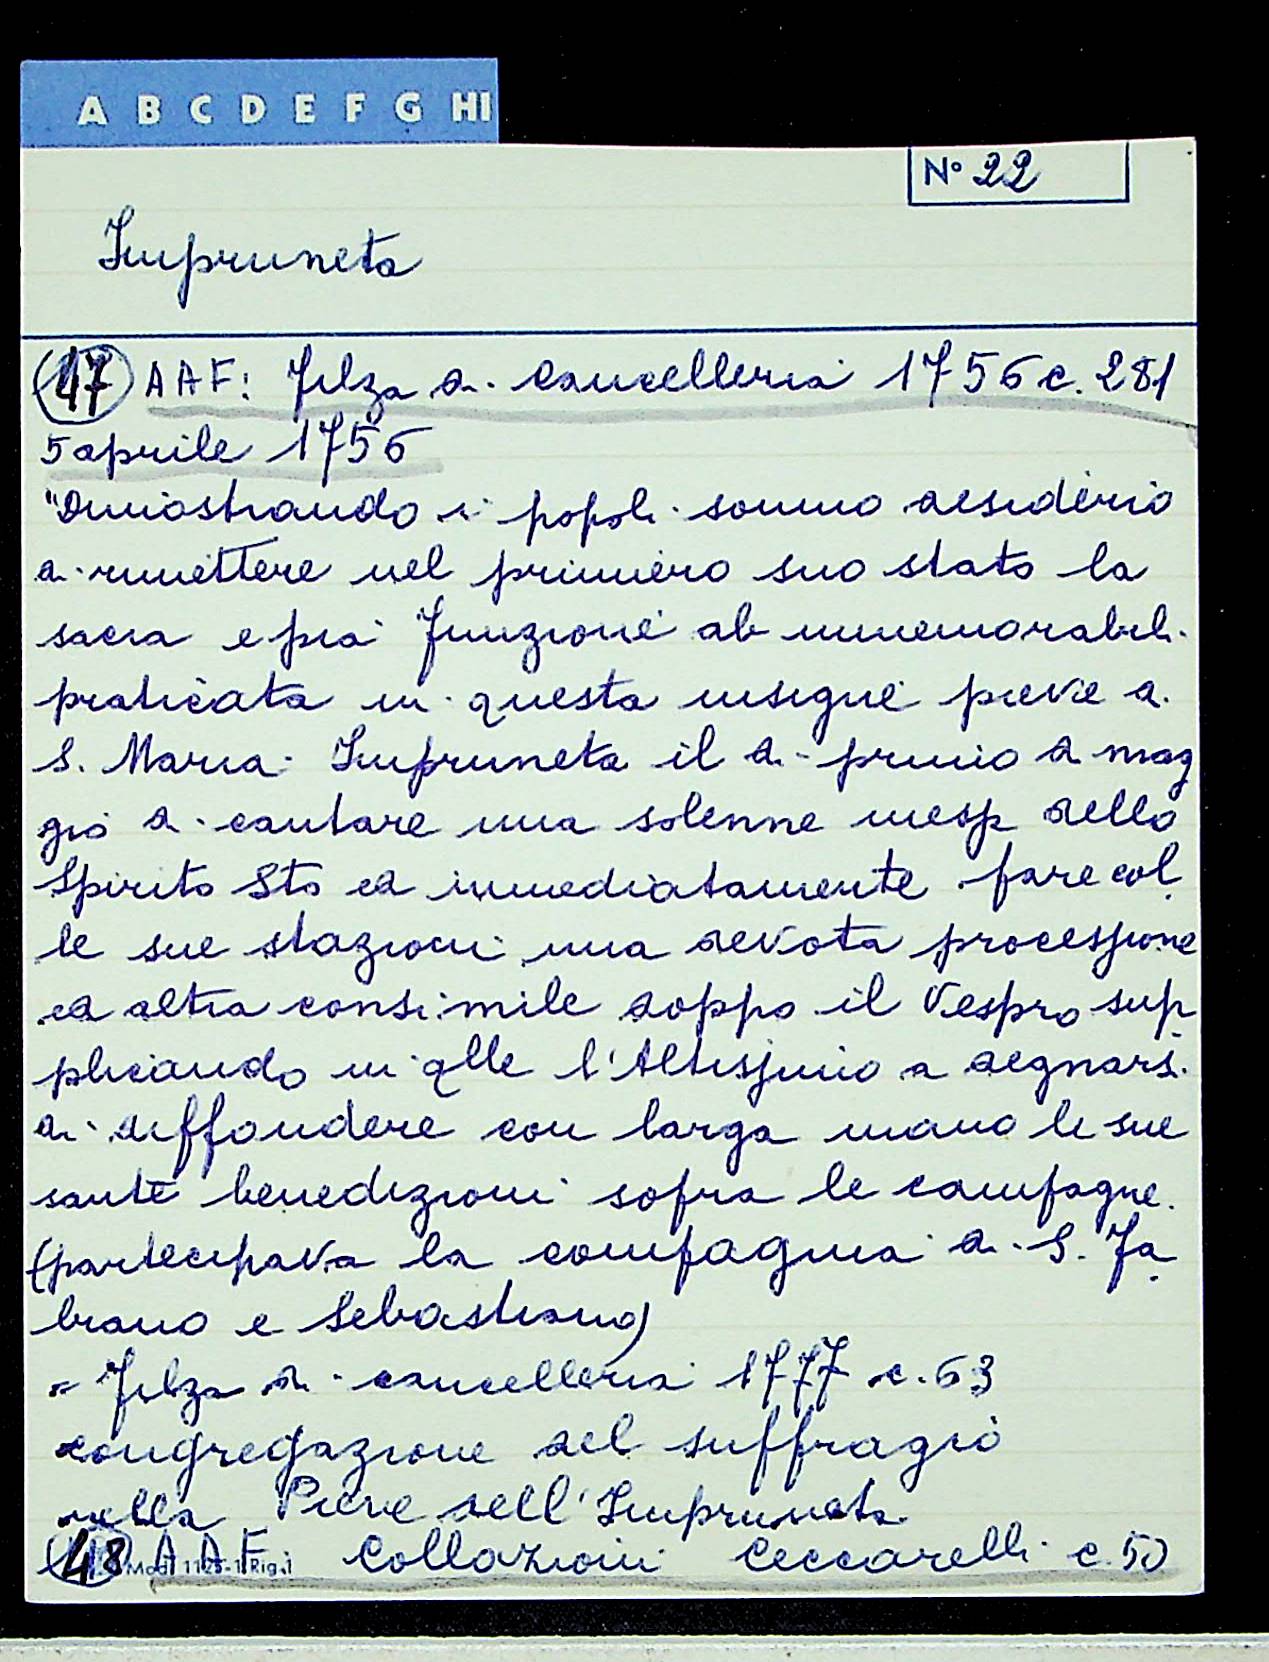 A B C D E F G HI
N° 22
Impruneta
47 AAF: Filza di cancelleria 1756 c. 281
5 aprile 1756
"Dimostrando i popoli sommo desiderio
di rimettere nel primiero suo stato la
sacra e pia funzione ab immemorabili
praticata in questa insigne pieve di
S. Maria Impruneta il dì primo di mag
gio di cantare una solenne messa dello
Spirito Sto ed immediatamente fare col
le sue stazioni una devota processione
ed altra consimile doppo il Vespro sup
plicando in qlle l'Altissimo a degnarsi
di diffondere con larga mano le sue
sante benedizioni sopra le campagne.
(partecipava la compagnia di S. Fa
biano e Sebastiano)
= Filza di cancelleria 1777 c. 63
congregazione del suffragio
nella Pieve dell'Impruneta.
48 AAF. Collazioni Ceccarelli c. 50